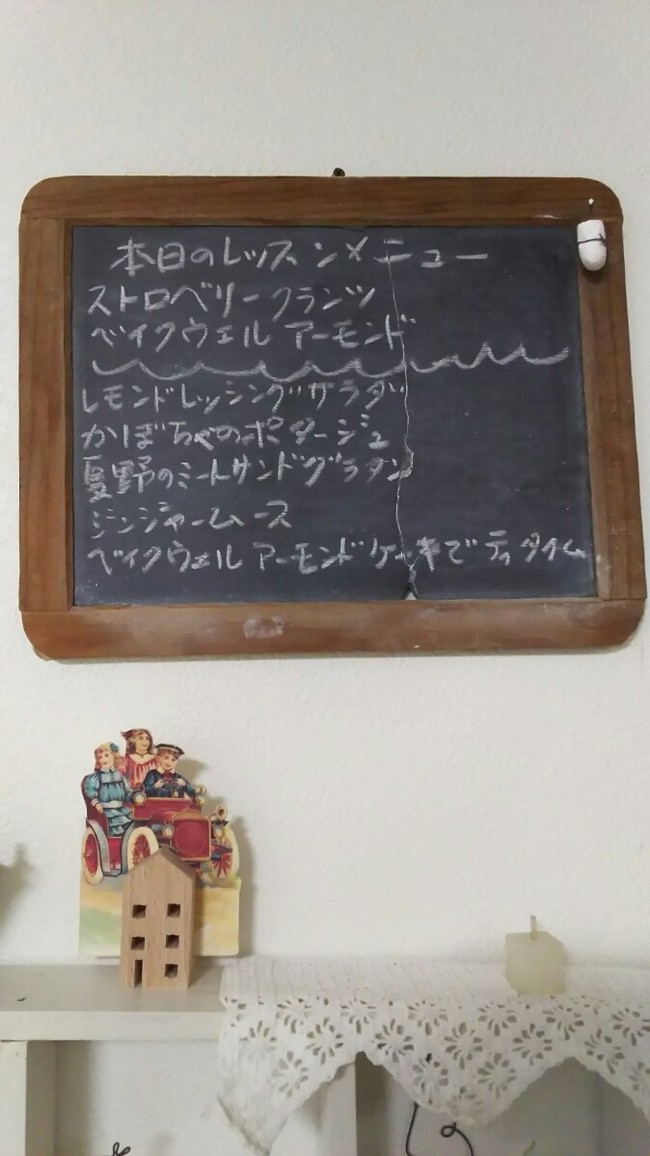 本日のレッスンメニュー
ストロベリークランツ
ベイクウェルアーモンド
レモンドレッシングサラダ
かぼちゃのポタージュ
夏野のミートサンドグラタン
ジンジャームース
ベイクウェルアーモンドケーキでティタイム